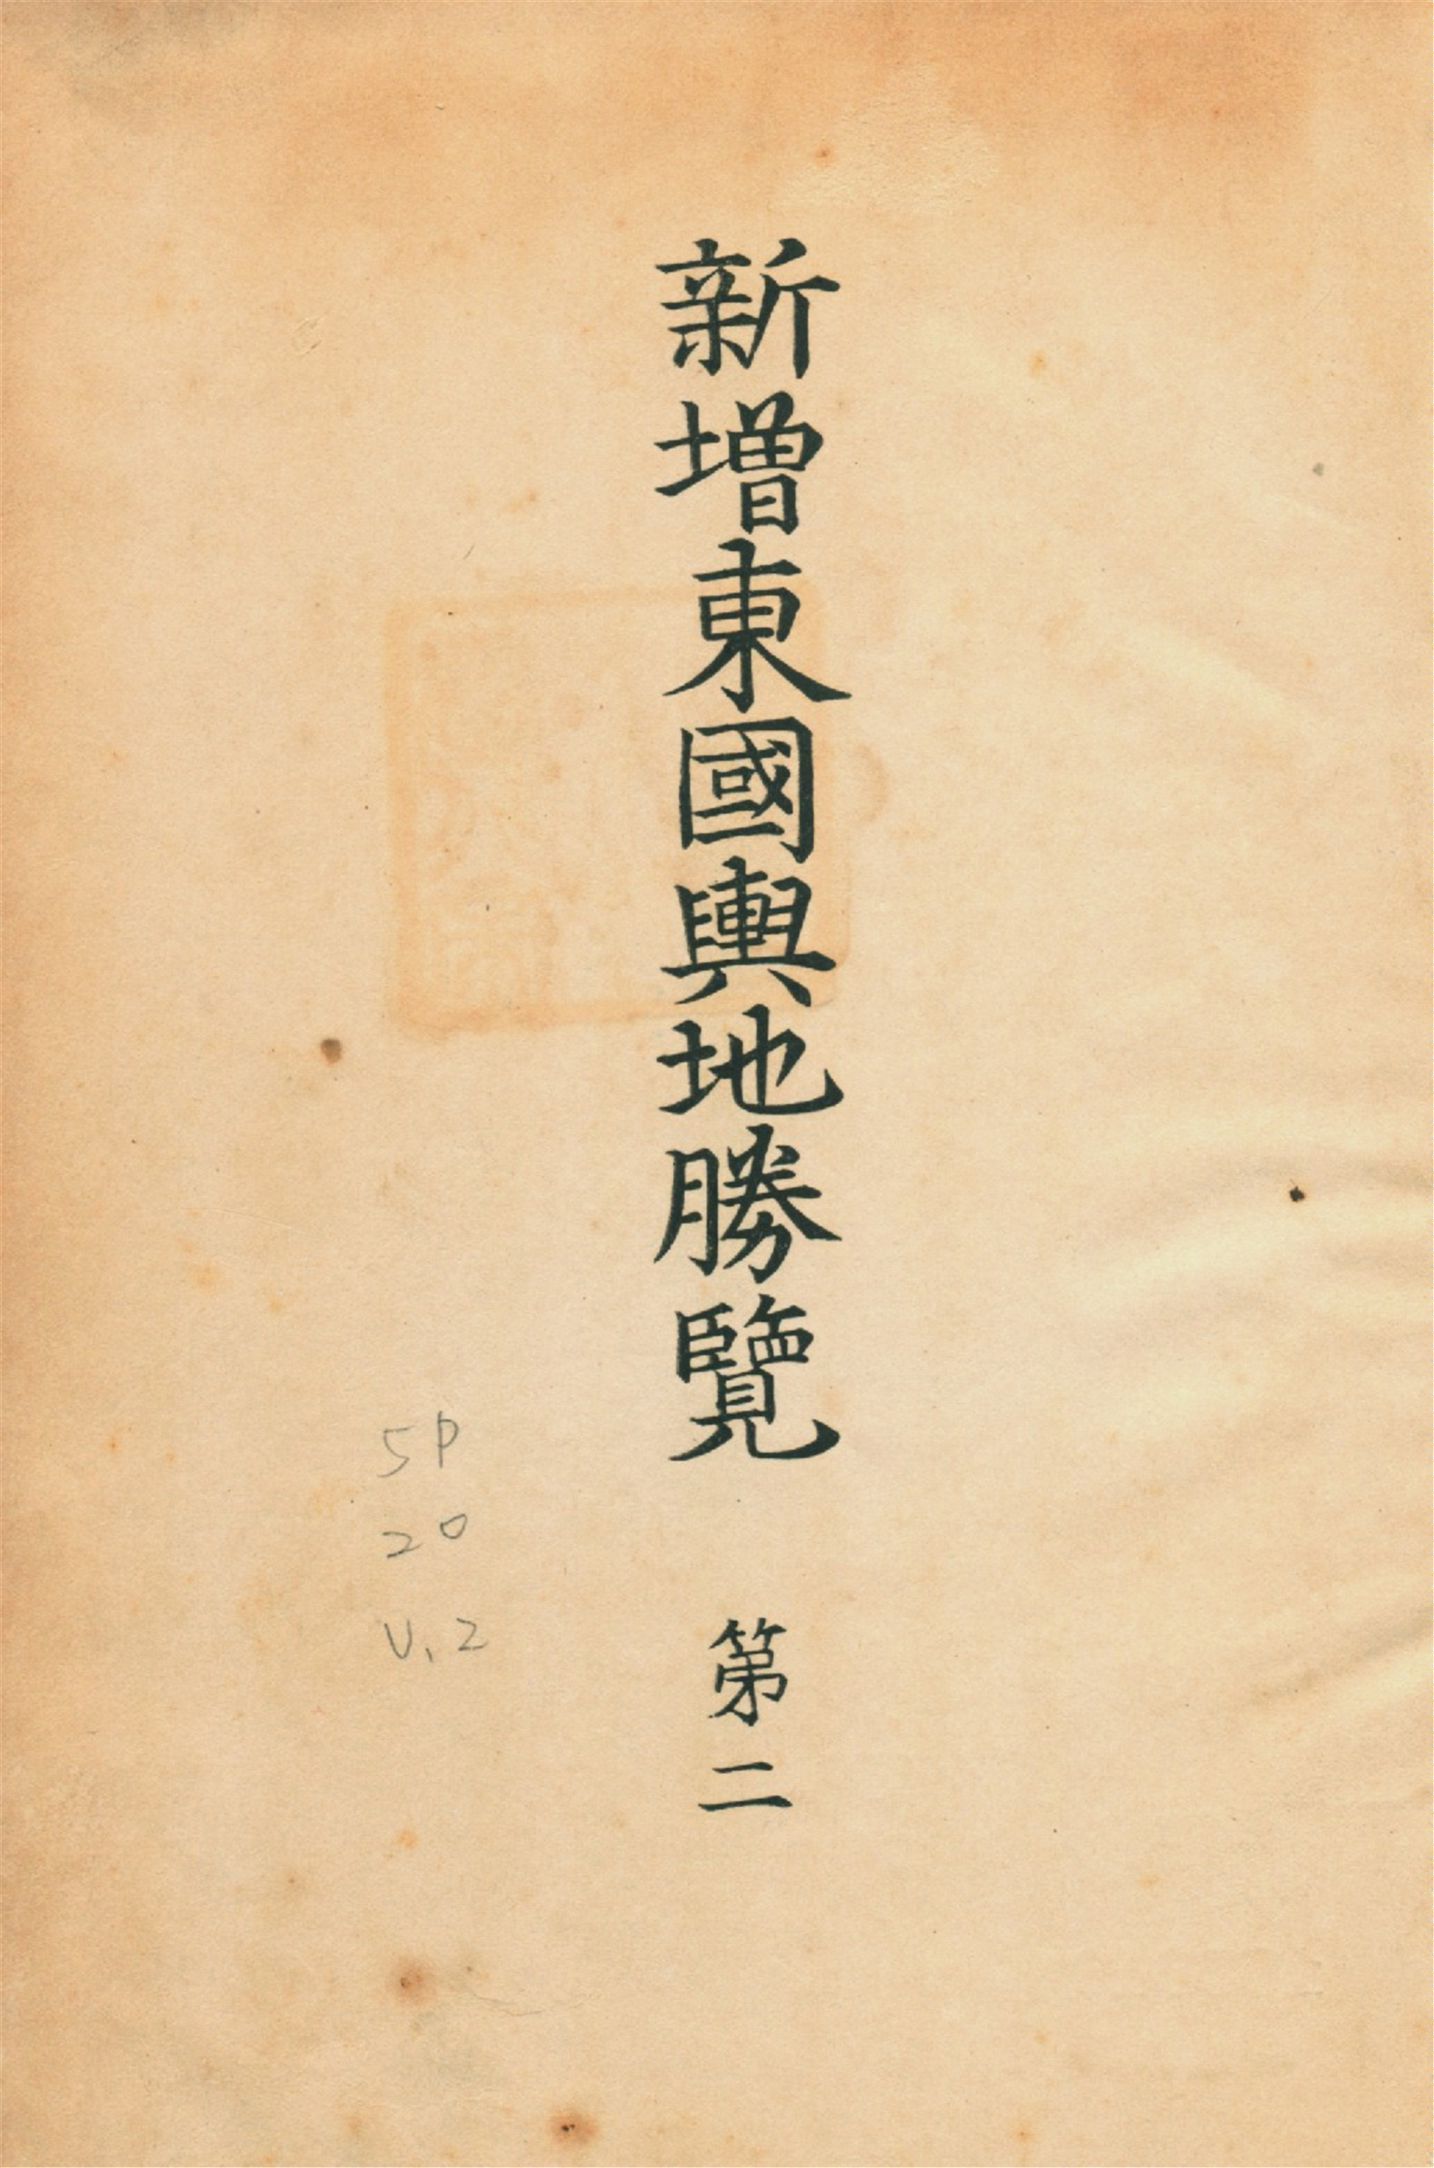 新增東國輿地勝覽
第二
5P
20
V.2